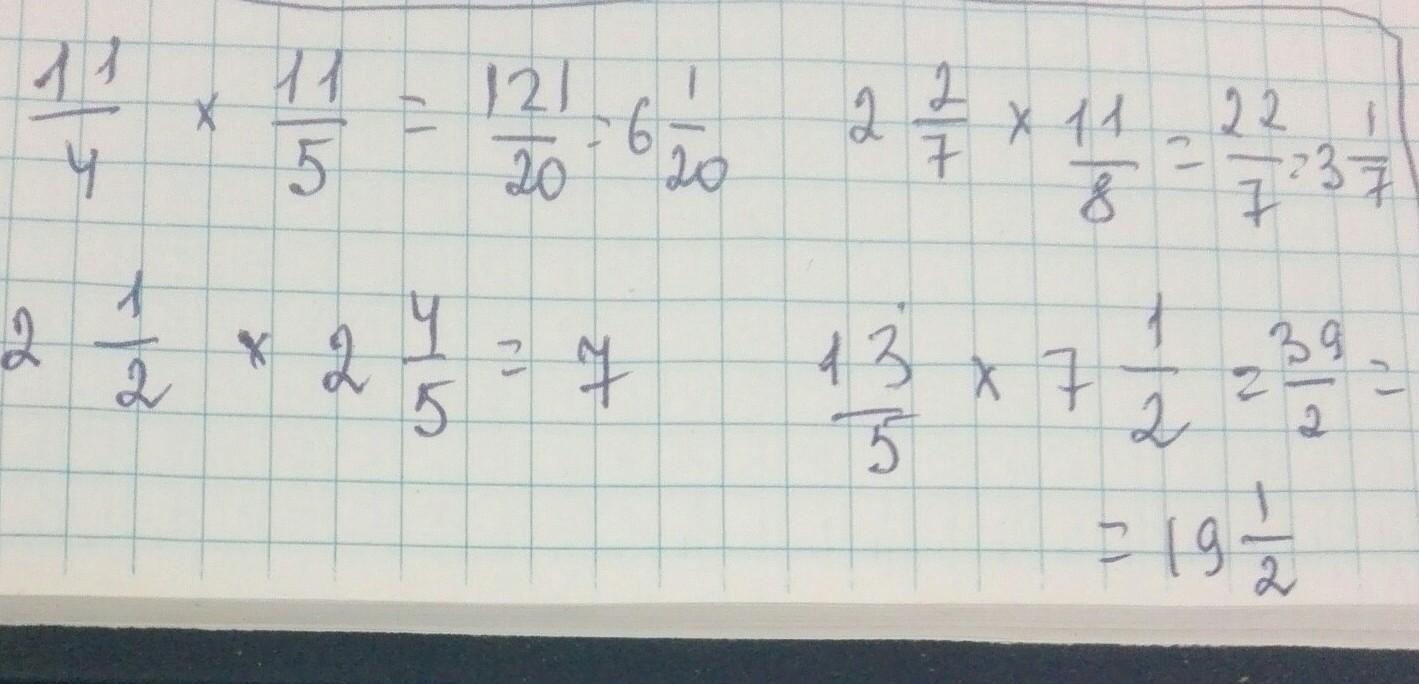 11/4 × 11/5 = 121/20 = 6 1/20
2 2/7 × 11/8 = 22/7 = 3 1/7
2 1/2 × 2 4/5 = 7
13/5 × 7 1/2 = 39/2 =
= 19 1/2